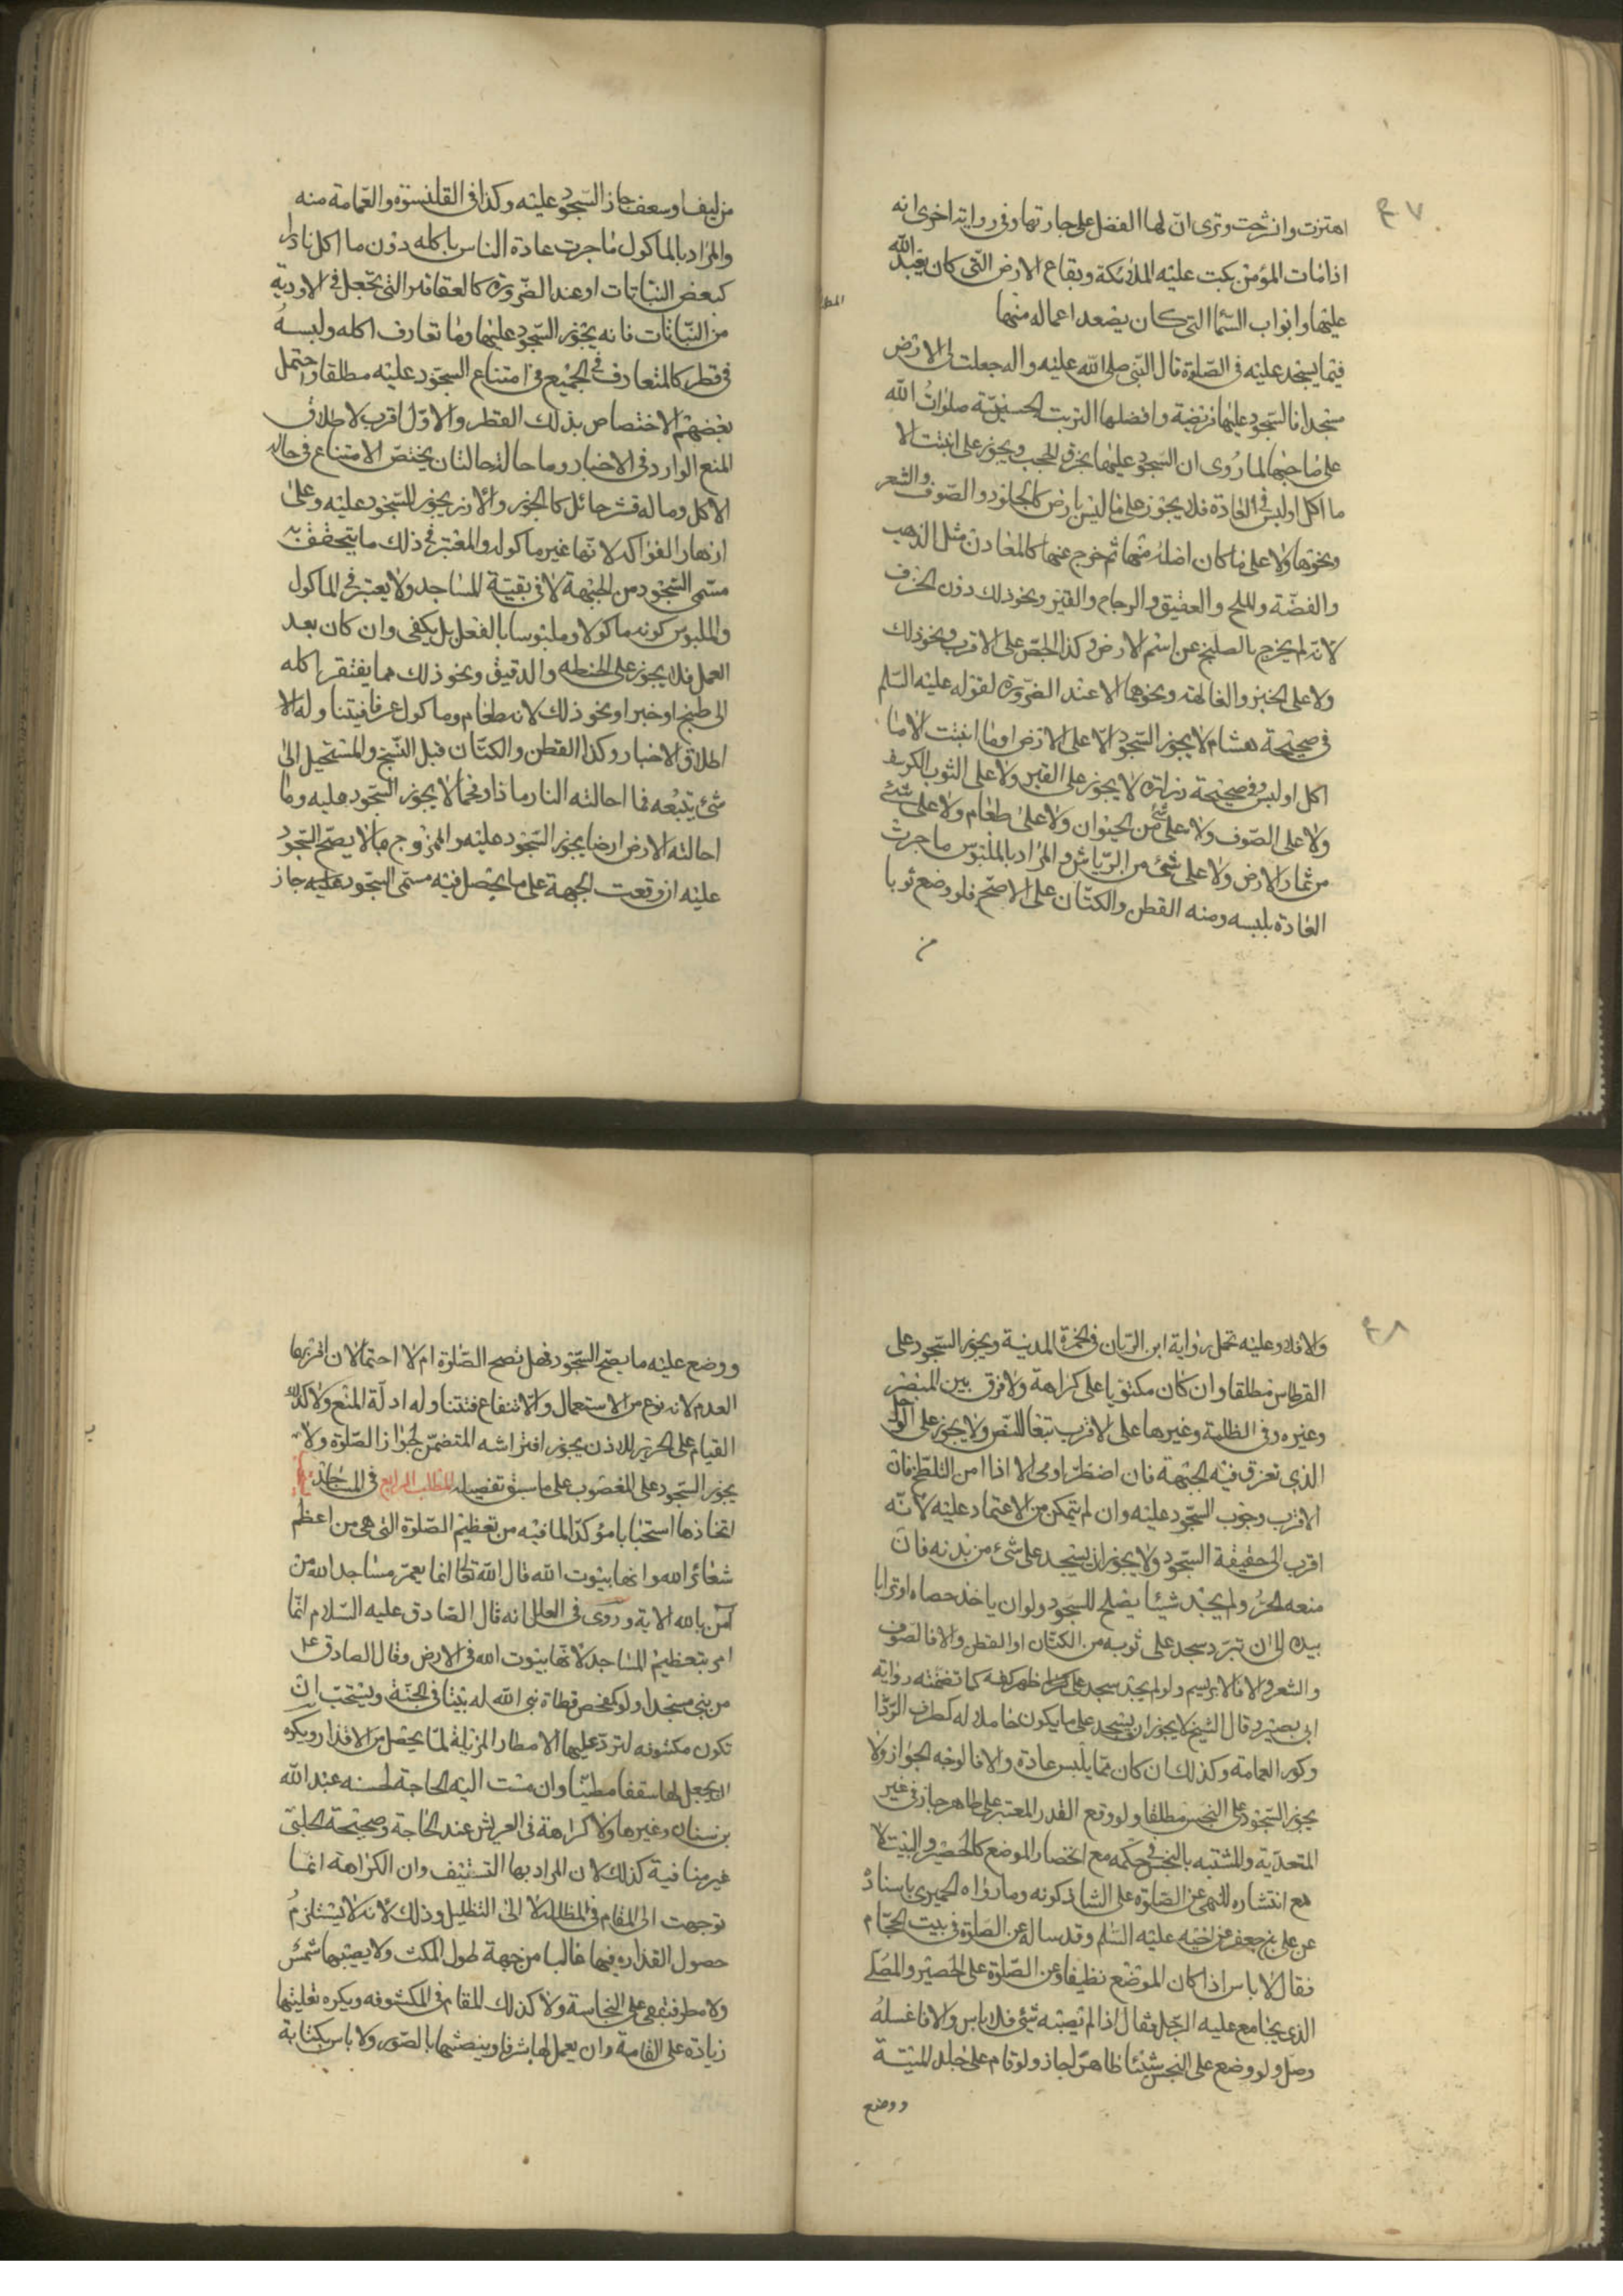 ٤٠٧
اهتزت وانشرحت وترى ان لها الفضل على جارتها وفى رواية اخرى انه
اذا مات المؤمن بكت عليه الملائكة وبقاع الارض التى كان يعبد الله
عليها وابواب السما التى كان يصعد اعماله منها
المطلب
فيما يسجد عليه فى الصلوة قال النبى صلى الله عليه واله جعلت لى الارض
مسجدا فالسجود عليها فريضة وافضلها التربت الحسينية صلوات الله
على صاحبها لما روى ان السجود عليها يخرق الحجب ويجوز على انبتت الا
ما اكل اولبس فى العادة فلا يجوز على ما ليس بارض كالجلود والصوف والشعر
ونحوها ولا على ما كان اصله منها ثم خرج عنها كالمعادن مثل الذهب
والفضة والملح والعقيق والرجاج والقير ونحو ذلك دون الخزف
لانه لم يخرج بالصليخ عن اسم الارض وكذا الجص على الاقرب ونحو ذلك
ولا على الخبز والفالهه ونحوهما الا عند الضرورة لقوله عليه السلم
فى صحيحة هشام لا يجوز السجود الا على الارض او ما انبتت الا ما
اكل اولبس وفى صحيحة زرارة لا يجوز على القير ولا على الثوب الكرسف
ولا على الصوف ولا على شئ من الحيوان ولا على طعام ولا على شئ
من ثمار الارض ولا على شئ من الرياش والمراد بالملبوس ما جرت
العادة بلبسه ومنه القطن والكتان على الاصح فلو وضع ثوبا
من
من ليف اوسعف جاز السجود عليه وكذا فى القلنسوة والعمامة منه
والمراد بالماكول ما جرت عادة الناس باكله دون ما اكل نادرا
كبعض النباتات او عند الضرورة كالعقاقير التى تجعل فى الادوية
من النباتات فانه يجوز السجود عليها وما تعارف اكله ولبسه
فى قطر كالمتعارف فى الجميع فى امتناع السجود عليه مطلقا واحتمل
بعضهم الاختصاص بذلك القطر والاول اقرب لاطلاق
المنع الوارد فى الاخبار وما حالته حالتان يختص الامتناع فى حالة
الاكل وما له قشر حائل كالجوز والارز يجوز السجود عليه وعلى
ازهار الفواكه لانها غير ماكوله والمعتبر فى ذلك ما يتحقق به
مسمى السجود من الجبهة لا فى بقية المساجد ولا يعتبر فى الماكول
والملبوس كونه ماكولا وملبوسا بالفعل بل يكفى وان كان بعد
العمل فلا يجوز على الحنطه والدقيق ونحو ذلك مما يفتقر اكله
الى طبخ او خبز او نحو ذلك لانه طعام وماكول عرفا فيتناوله الا
اطلاق الاخبار وكذا القطن والكتان قبل النسج والمستحيل الى
شئ يتبعه فما احالته النار رمادا وفحما لا يجوز السجود عليه وما
احالته الارض ارضا يجوز السجود عليه والممزوج بما لا يصح السجود
عليه ان وقعت الجبهة على ما يحصل فيه مسمى السجود عليه جاز
٤٠٨
والافلا وعليه تحمل رواية ابن الريان فى الخمرة المدنية ويجوز السجود على
القرطاس مطلقا وان كان مكتوبا على كراهة ولا فرق بين المبصر
وغيره وفى الظلمة وغيرها على الاقرب تبعا للنص ولا يجوز على الوحل
الذى تغرق فيه الجبهة فان اضطر اومى الا اذا امن التلطخ فان
الاقرب وجوب السجود عليه وان لم يتمكن من الاعتماد عليه لانه
اقرب الى حقيقة السجود ولا يجوز ان يسجد على شئ من بدنه فان
منعه الحر ولم يجد شيئا يصلح للسجود ولو ان ياخذ حصاه او ترابا
بيده الى ان تبرد سجد على ثوبه من الكتان او القطن والا فالصوف
والشعر والا فالابريسم ولو لم يجد سجد على ظهر كفه كما تضمنته رواية
ابى بصير وقال الشيخ لا يجوز ان يسجد على ما يكون حاملا له كطرف الردا
وكور العمامة وكذلك ان كان مما يلبس عادة والا فالوجه الجواز ولا
يجوز السجود على النجس مطلقا ولو وقع القدر المعتبر على طاهر جاز فى غير
المتعدية والمشتبه بالنجس فى حكمه مع انحصار الموضع كالحصير والبيت لا
مع انتشاره للنهى عن الصلوة على الشاذكونه وما رواه الحميرى باسناده
عن على بن جعفر عن اخيه عليه السلم وقد ساله عن الصلوة فى بيت الحجام
فقال لا باس اذا كان الموضع نظيفا وعن الصلوة على الحصير والمصلى
الذى يجامع عليه الرجل فقال اذا لم تصبه شئ فلا باس والا فاغسله
وصل ولو وضع على النجس شيئا طاهرا جاز ولو قام على جلد الميتة
ووضع
ووضع عليه ما يصح السجود فهل تصح الصلوة ام لا احتمالان اقربهما
العدم لانه نوع من الاستعمال والانتفاع فتتناوله ادلة المنع ولا كذلك
القيام على الحرير للاذن يجوز افتراشه المتضمن لجواز الصلوة ولا
يجوز السجود على المغصوب على ما سبق تفصيله المطلب الرابع فى المساجد
اتخاذها استحبابا مؤكدا لما فيه من تعظيم الصلوة التى هى من اعظم
شعائر الله وانها بيوت الله قال الله تعالى انما يعمر مساجد الله من
آمن بالله الاية وروى فى العلل انه قال الصادق عليه السلام انما
امر بتعظيم المساجد لانها بيوت الله فى الارض وقال الصادق ع
من بنى مسجدا ولو كمفحص قطاة بنى الله له بيتا فى الجنة ويستحب ان
تكون مكشوفه لترد عليها الامطار المزيلة لما يحصل من الاقذار ويكره
ان يجعل لها سقفا مطينا وان مست اليه الحاجة لحسنه عبد الله
بن سنان وغيرها ولا كراهة فى العريش عند الحاجة وصحيحة الحلبى
غير منافية كذلك لان المراد بها التسقيف وان الكراهة انما
توجهت الى المقام فى المظلله لا الى التظليل وذلك لانه لا يستلزم
حصول القذاره فيها غالبا من جهة طول المكث ولا يصيبها شمس
ولا مطر فتبقى على النجاسة ولا كذلك المقام فى المكشوفه ويكره تعليتها
زيادة على القامة وان يعمل لها شرفا وينقشها بالصور ولا باس بكتابة